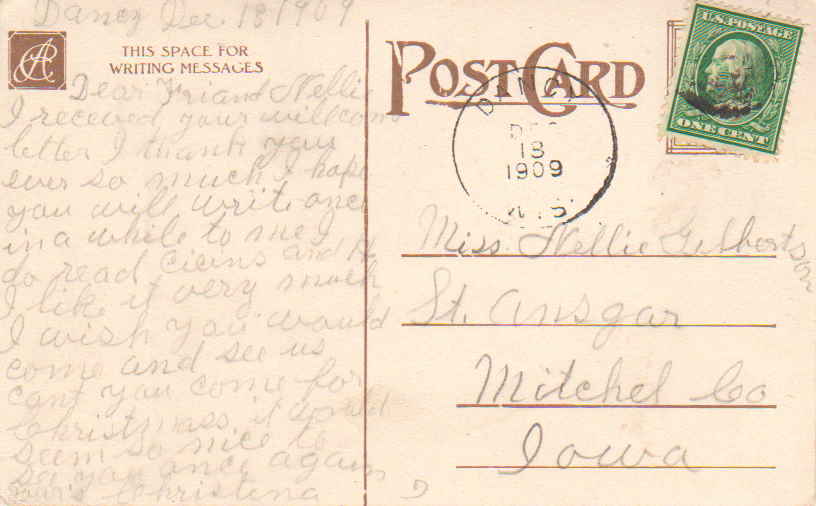 Dancy Dec. 18 1909
THIS SPACE FOR
WRITING MESSAGES
Dear Friand Nellie
I received your willcom
letter I thank you
ever so much I hope
you will write once
in a while to me I
do read and
I like it very much
I wish you would
come and see us
cant you come for
Christmass it would
seem so nice to
se you once again
Christina
POST CARD
DANCY
DEC
18
1909
WIS.
U.S. POSTAGE
ONE CENT
Miss Nellie Gilbertson
St. Ansgar
Mitchel Co
Iowa